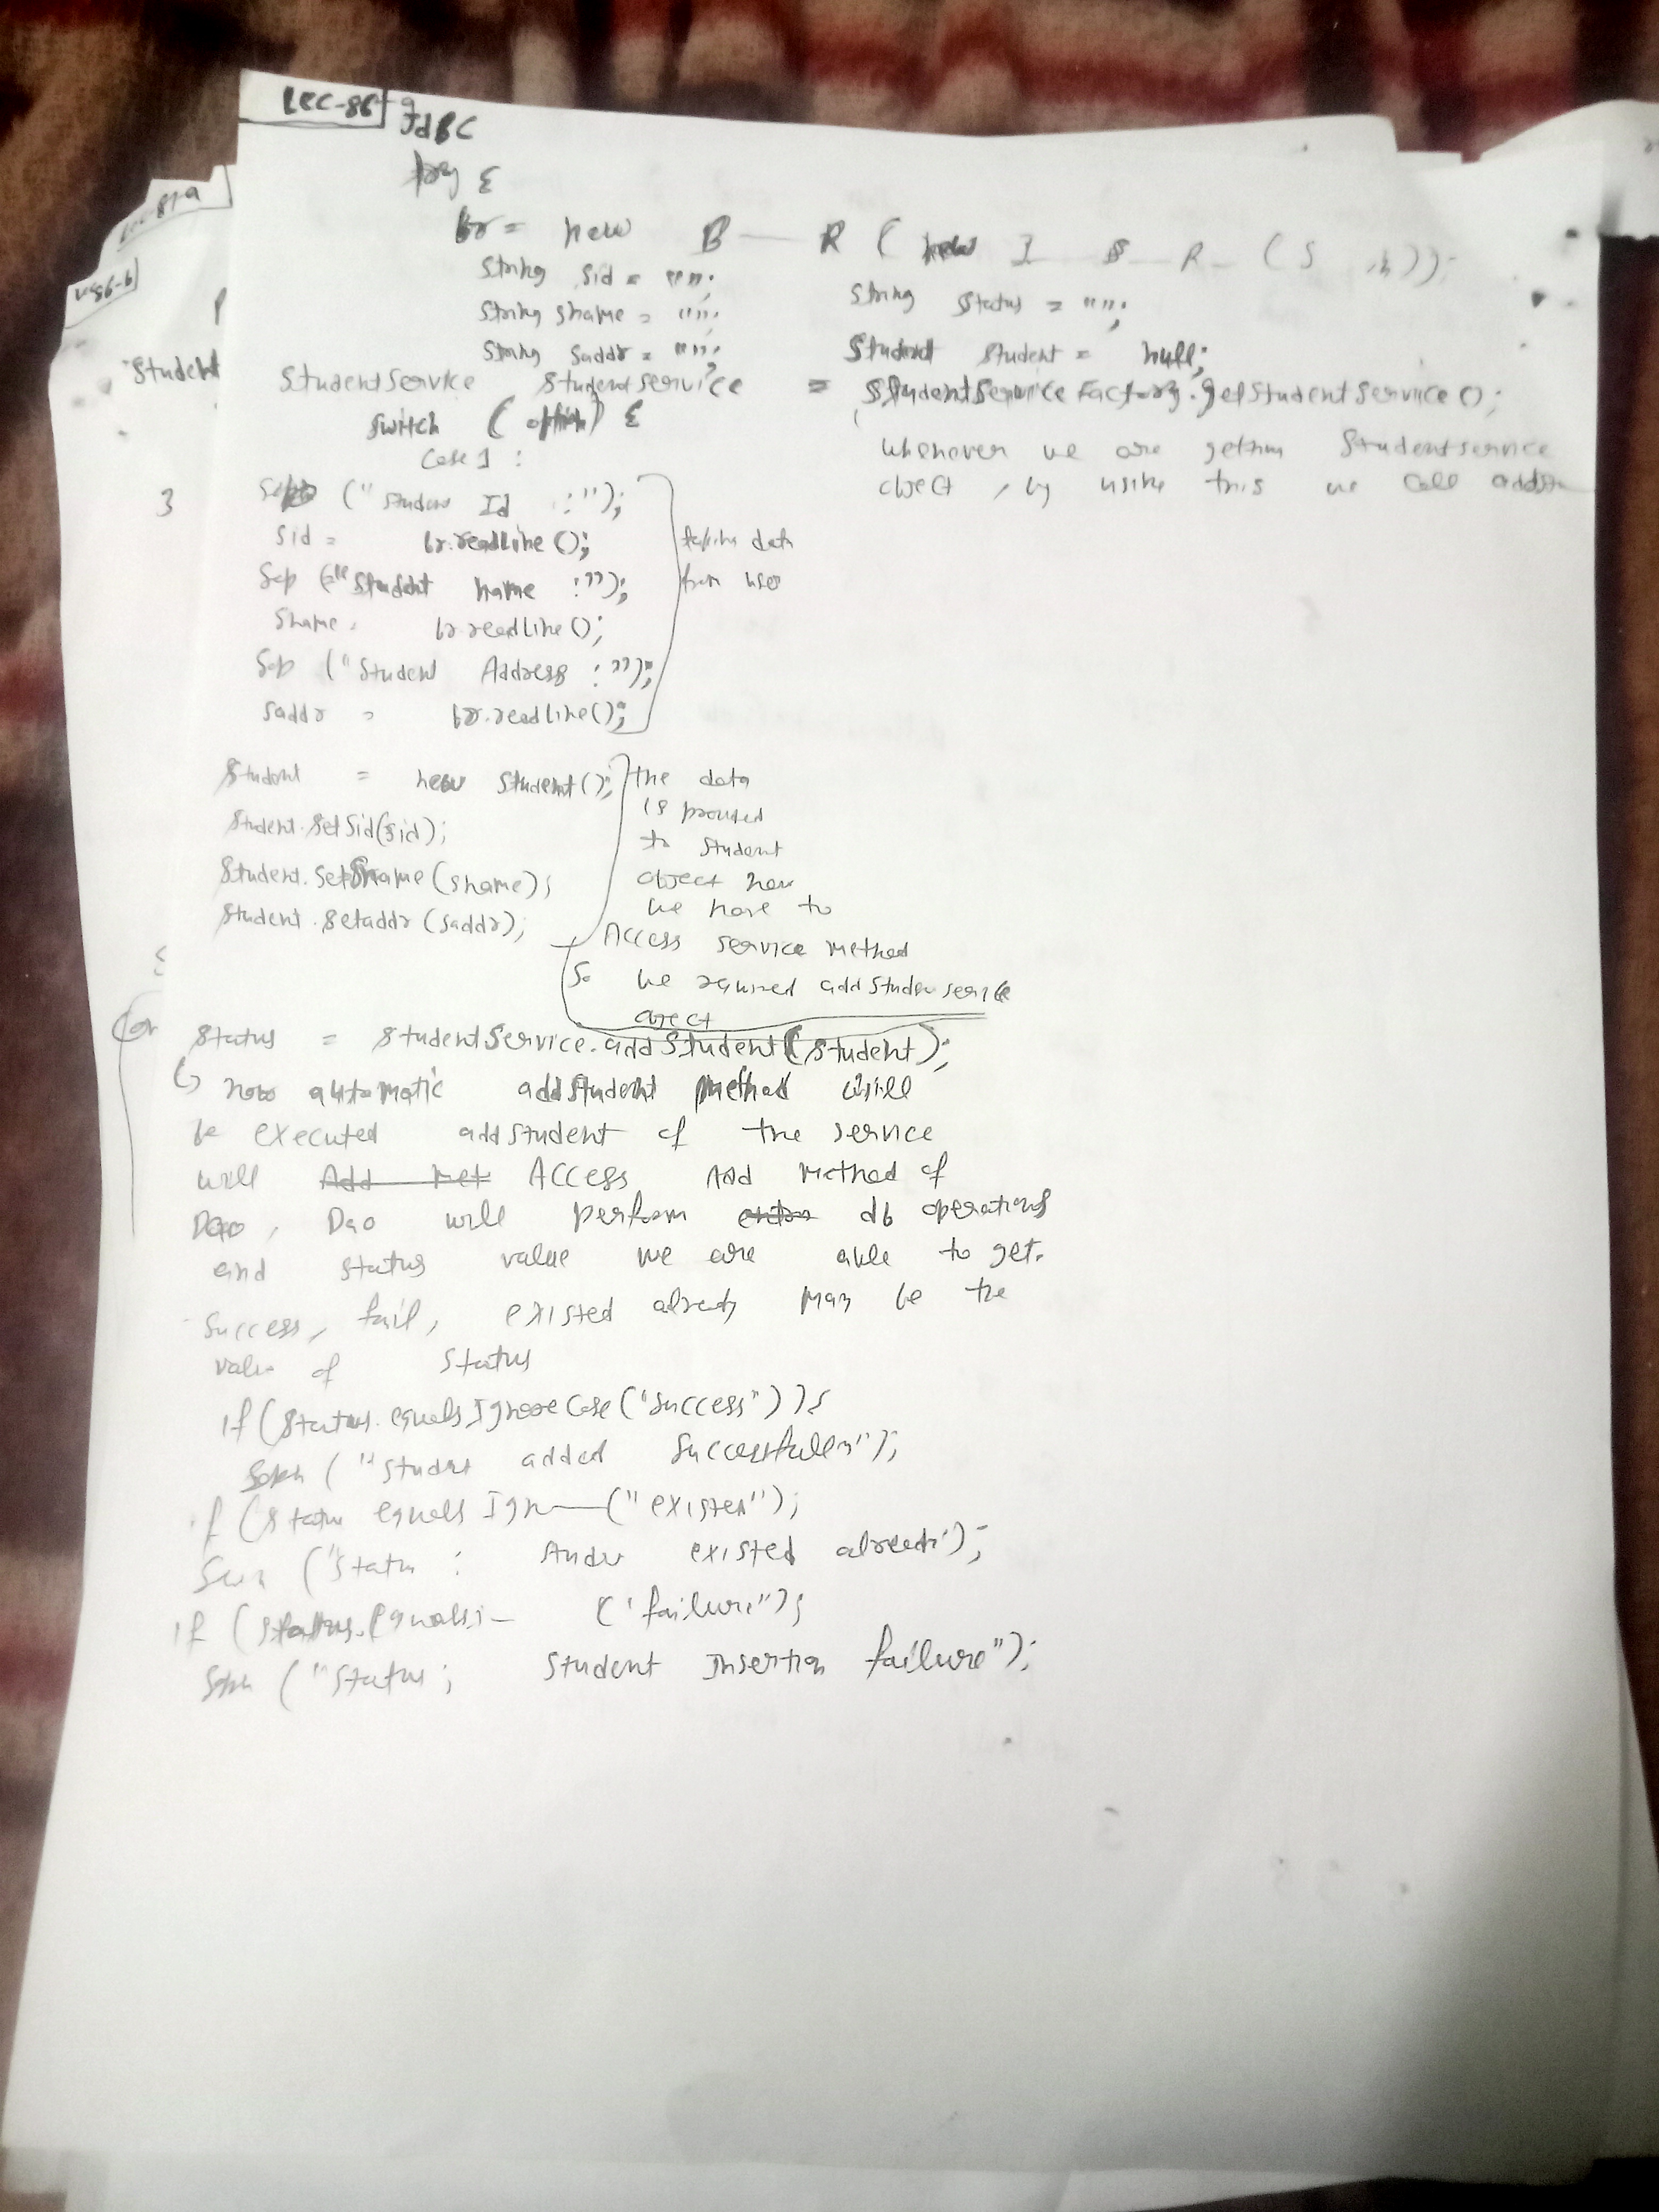 LEC-86
JdBC
try {
br = new B — R ( new I — S — R — ( S .in));
String sid = "";
String status = "";
String sname = "";
String saddr = "";
Student student = null;
Student
StudentService studentservice = StudentServiceFactory.getStudentService();
switch (option) {
Case 1 :
whenever we are gettin Studentservice
object , by using this we call addstu
3
Sop ("Student Id :");
sid = br.readLine();
taking data
Sop ("Student name :");
from user
Sname = br.readLine();
Sop ("Student Address :");
saddr = br.readLine();
Student = new Student();
the data
is provided
Student.setSid(sid);
to Student
Student.setSname(sname);
object now
we have to
Student.setaddr(saddr);
Access service method
So we required addStuden service
object
Status = studentService.addStudent(student);
now automatic addstudent method will
be executed addstudent of the service
will Add met Access Add method of
Dao, Dao will perform db operations
and status value we are able to get.
Success, fail, existed already may be the
value of Status
if(Status.equalsIgnoreCase("Success")){
Sopln ("Student added Successfully");
if (Status equals Ign—("existed");
("Status : existed already");
if (status.Equalsi— ('failure");
Sopln ("Status; Student Insertion failure");